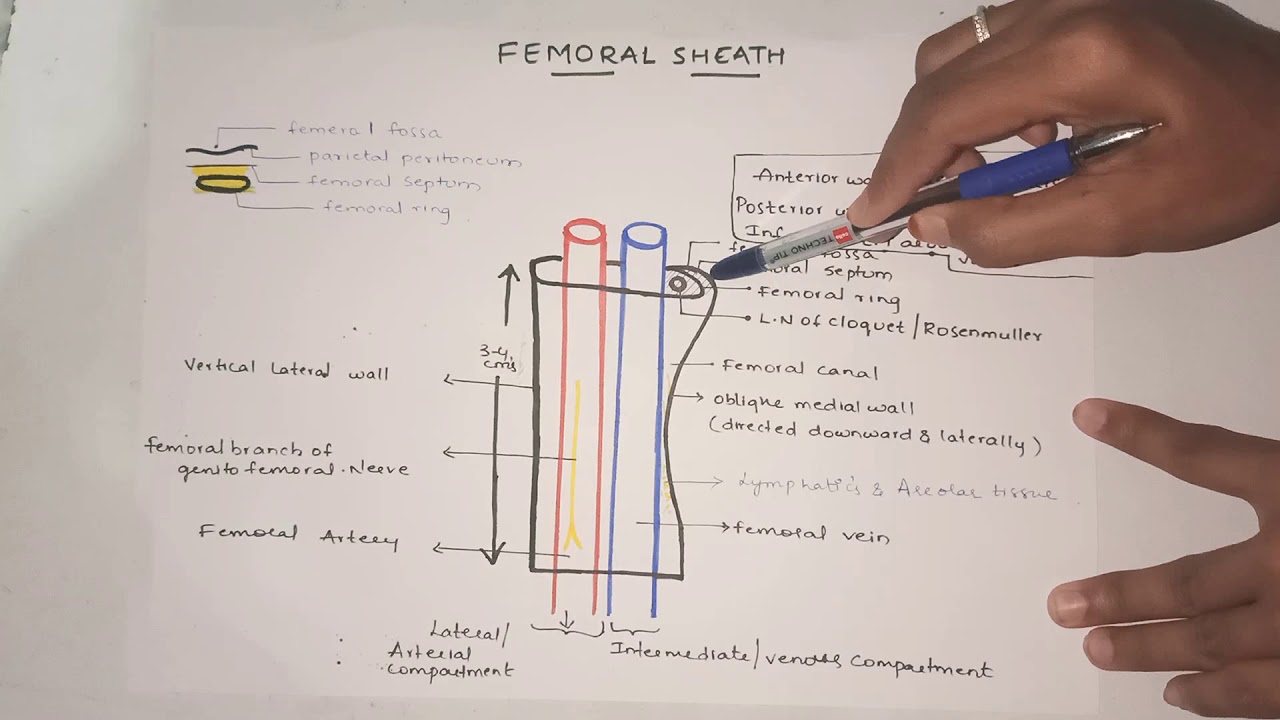 FEMORAL SHEATH
femoral fossa
parietal peritoneum
femoral septum
femoral ring
Anterior
Posterior
fossa
septum
femoral ring
L.N of cloquet/Rosenmuller
3-4
cms
Vertical Lateral wall
femoral canal
oblique medial wall
(directed downward & laterally)
femoral branch of
genito femoral. Nerve
Lymphatics & Areolar tissue
Femoral Artery
femoral vein
Lateral/
Arterial
compartment
Intermediate/venous compartment
TECHNO TIP